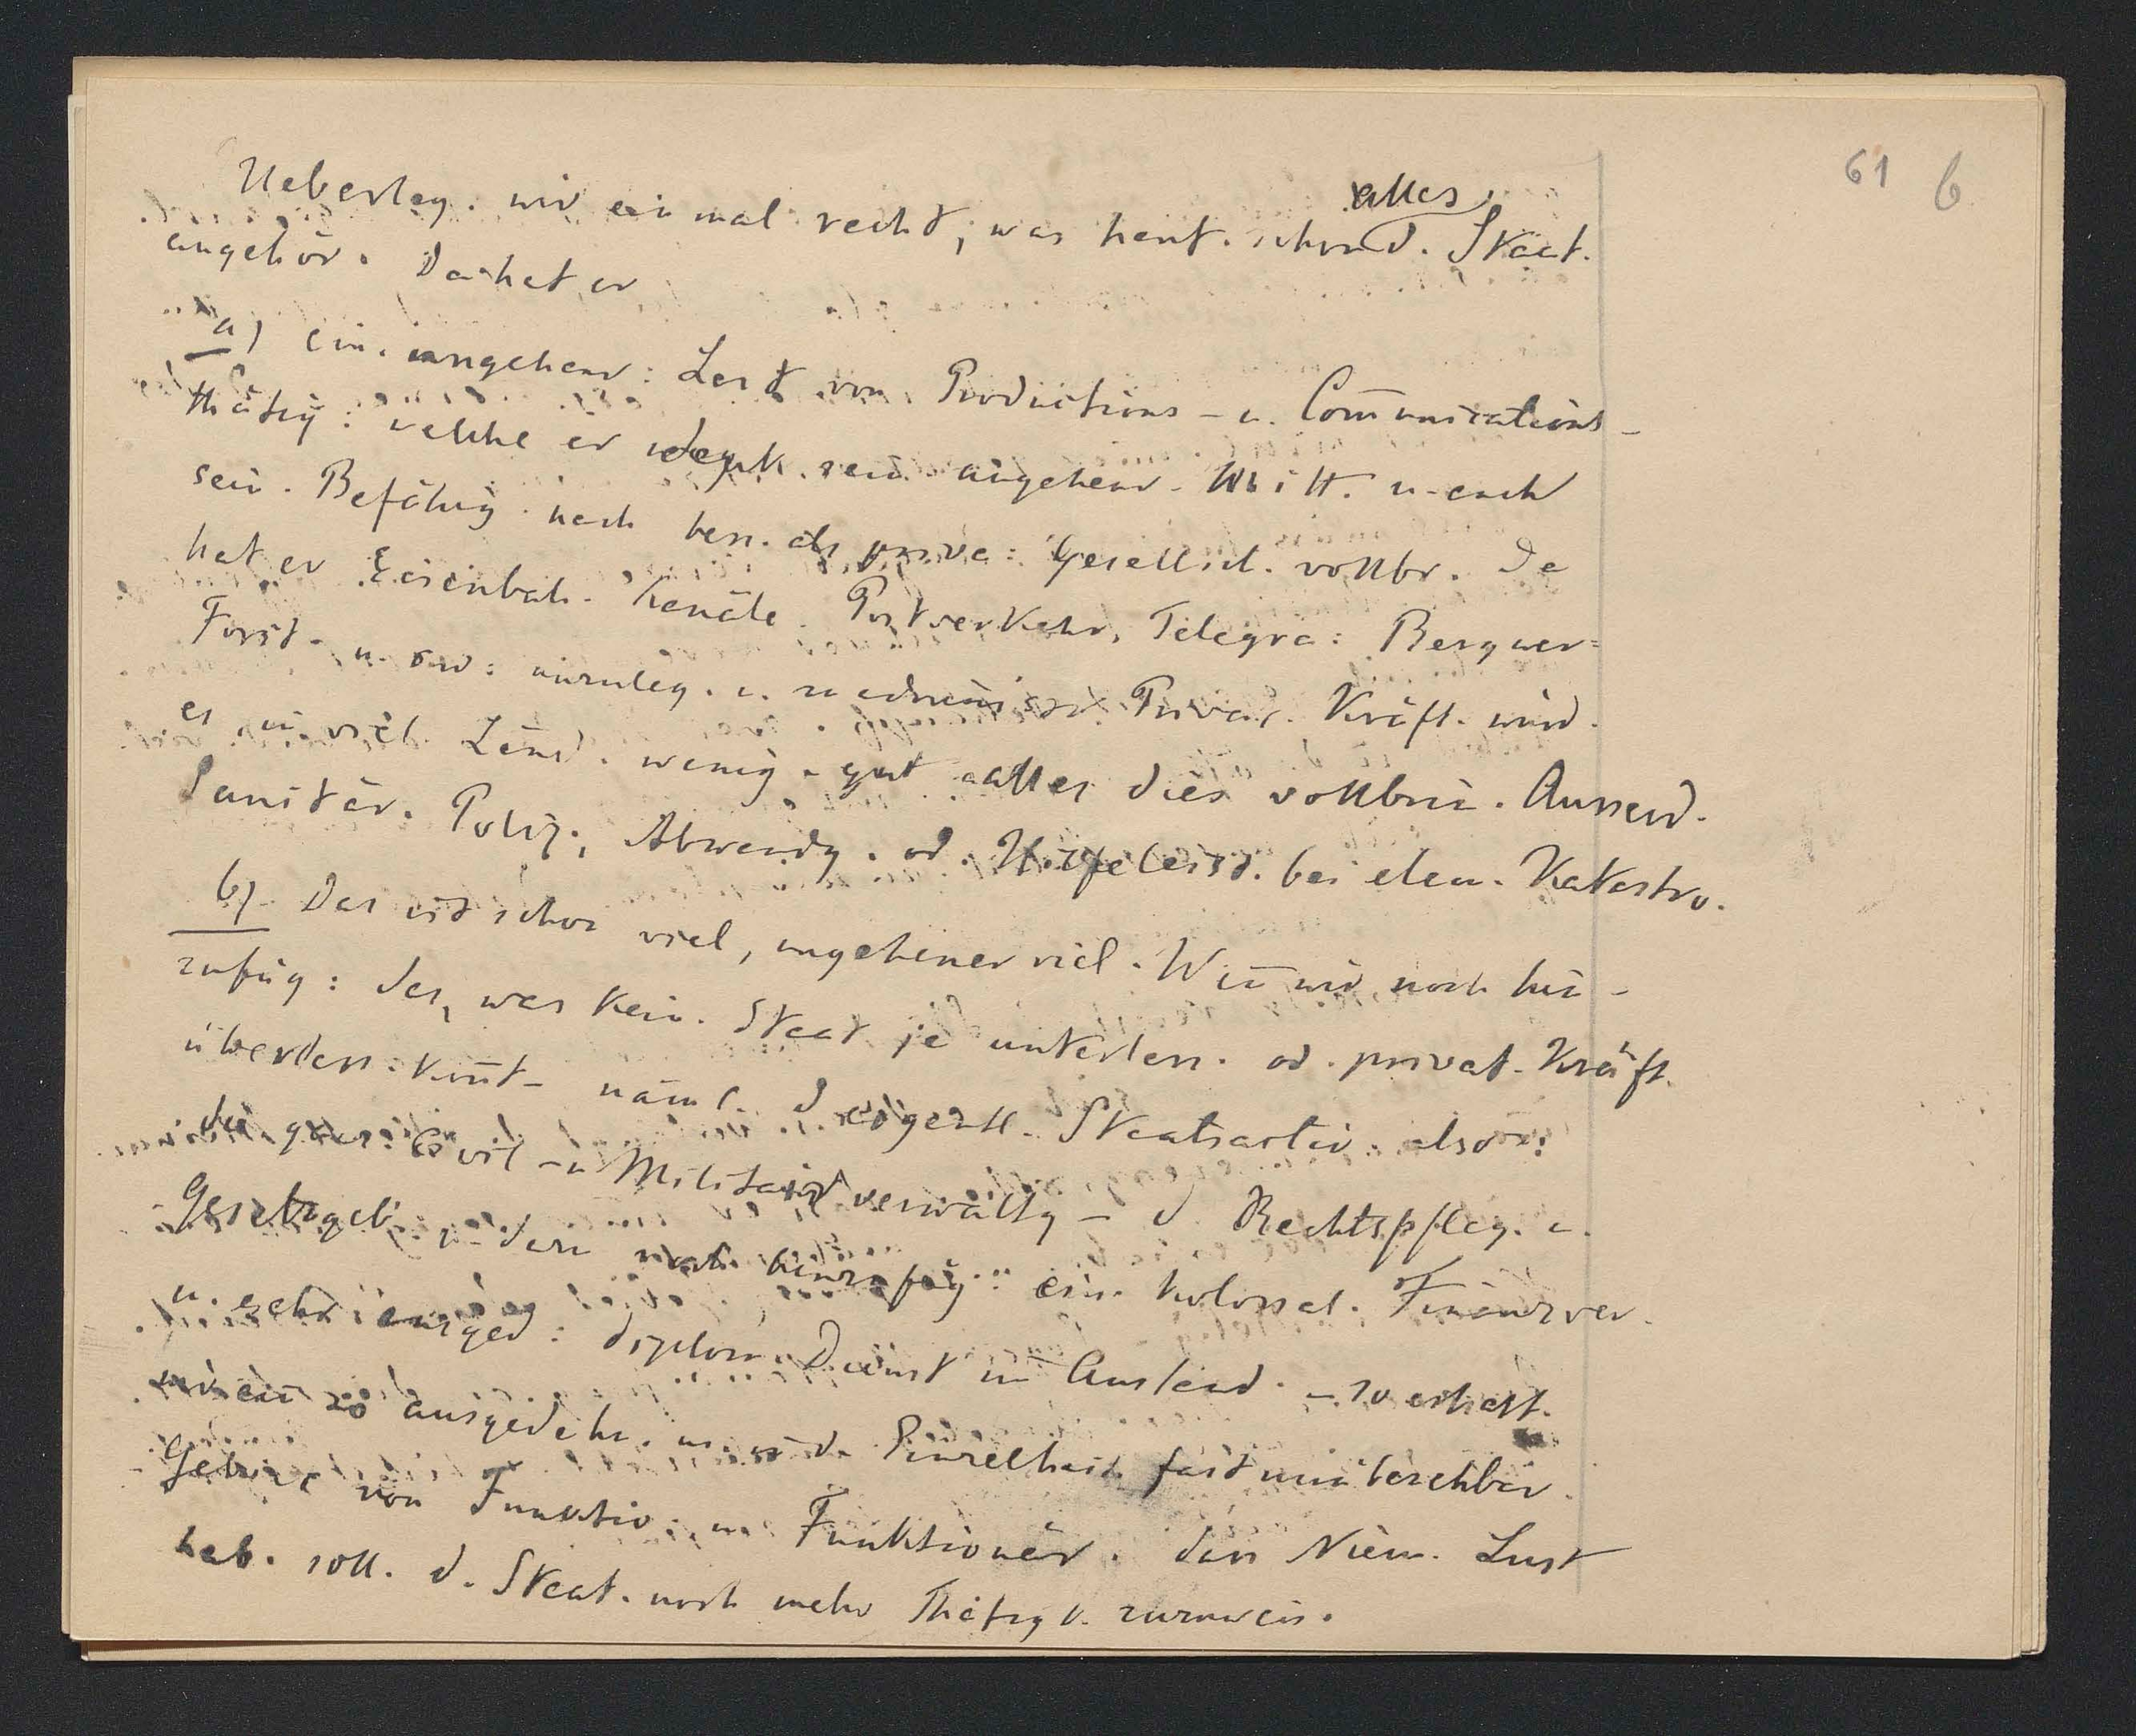 61 6
alles
Ueberleg. wir einmal recht, was heut. schon d. Staat.
angehör. Da hat er
a) ein. ungeheur: Last von Productions - u. Com̄unications-
thätig: welche er dank sein. ungeheur. Mitt. u. auch
sein. Befähig. noch bess. als priva: Gesellsch. vollbr. Da
hat er Eisenbah. Kanäle. Postverkehr, Telegra: Bergwer=
Forst- u. anzuleg. u. Privat. Kräft. würd.
es in viel. Länd. wenig. gut alles dies vollbrin. Ausserd.
Sanitär. Poliz., Abwendg. od. Hilfeleist. bei elem. Katastro.
b) Das ist schon viel, ungeheuer viel. Wen̄ wir noch hin-
zufüg: das, was kein. Staat je unterlass. od. privat. Kräft.
überlass. kon̄t- näml. d. eigentl. Staatsactio. also:
die ganz: Civil - u Militairverwaltg - d. Rechtspfleg. u.
Gesetzgeb. dan̄ noch hinzufüg: ein. kolossal. Finanzver.
u. sehr diplom. Dienst im Ausland. - so erhalt.
wir ein so ausgedehn. u. in d. Einzelheit. fast unübersehbar.
Gebiet von Funktio. u. Funktionär. dass Niem. Lust
hab. soll. d. Staat. noch mehr Thätigk. zuzuweis.